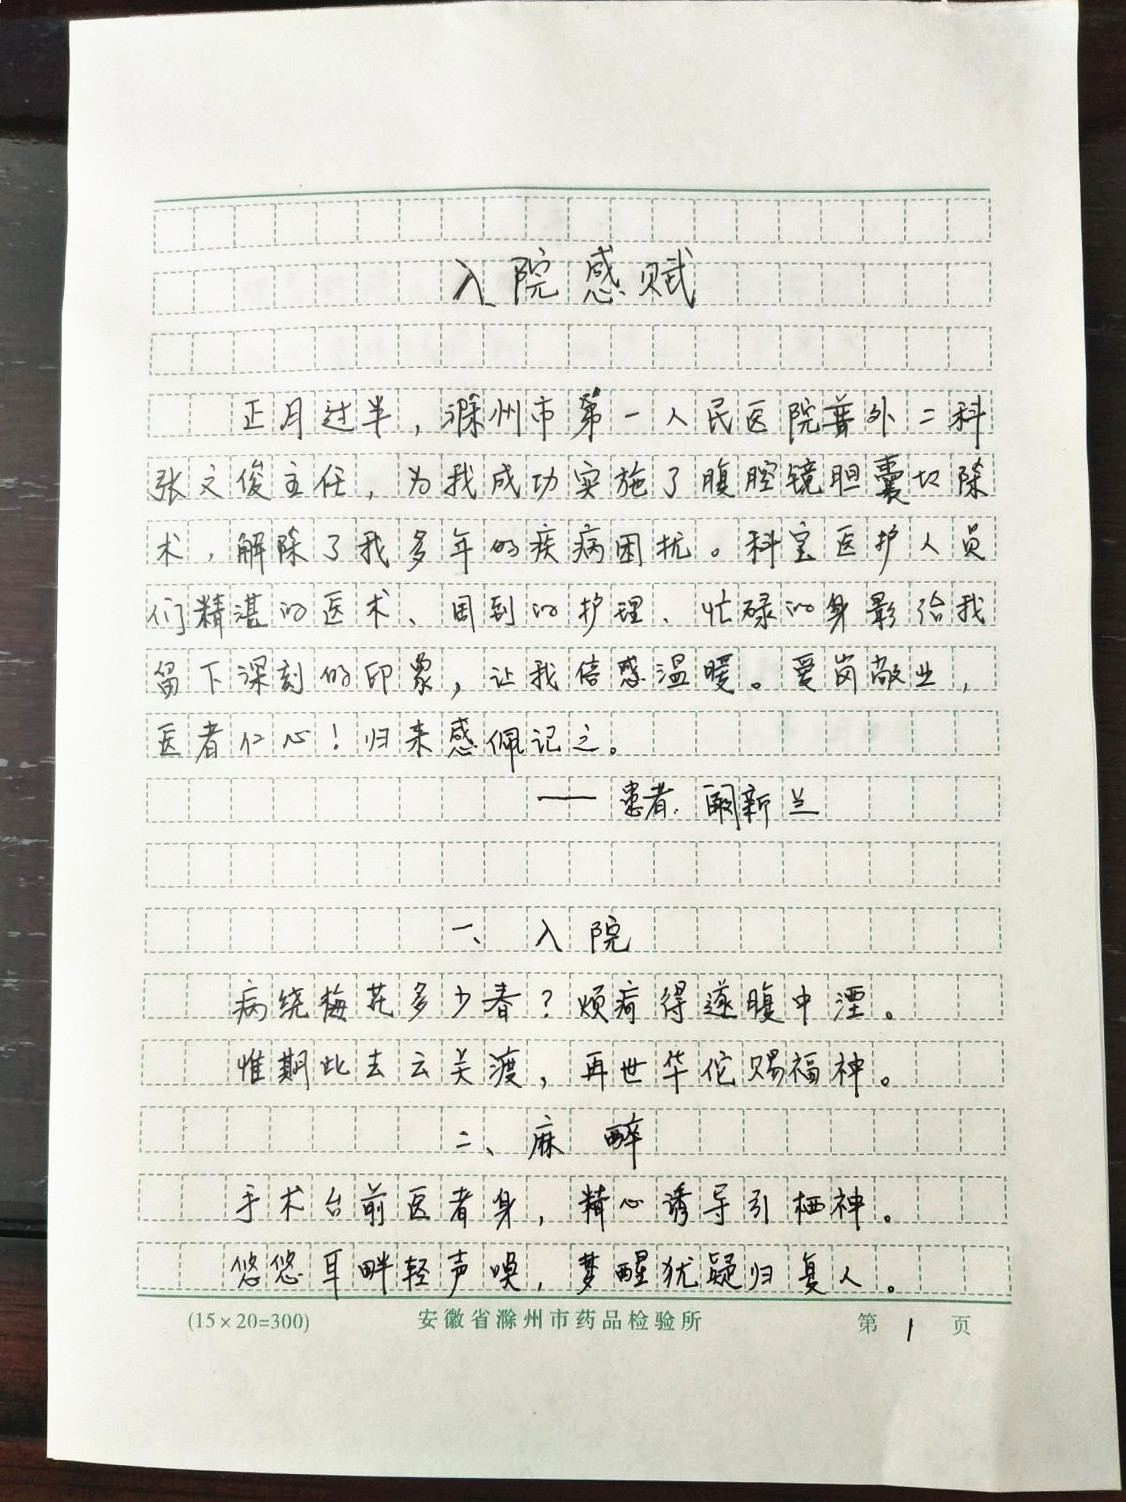 入院感赋
正月过半，滁州市第一人民医院普外二科
张文俊主任，为我成功实施了腹腔镜胆囊切除
术，解除了我多年的疾病困扰。科室医护人员
们精湛的医术、周到的护理、忙碌的身影给我
留下深刻的印象，让我倍感温暖。爱岗敬业，
医者仁心！归来感佩记之。
——患者：阚新兰
一、入院
病绕梅花多少春？烦疴得遂腹中湮。
惟期此去云关渡，再世华佗赐福神。
二、麻醉
手术台前医者身，精心诱导引栖神。
悠悠耳畔轻声唤，梦醒犹疑归复人。
(15×20=300) 安徽省滁州市药品检验所 第1页